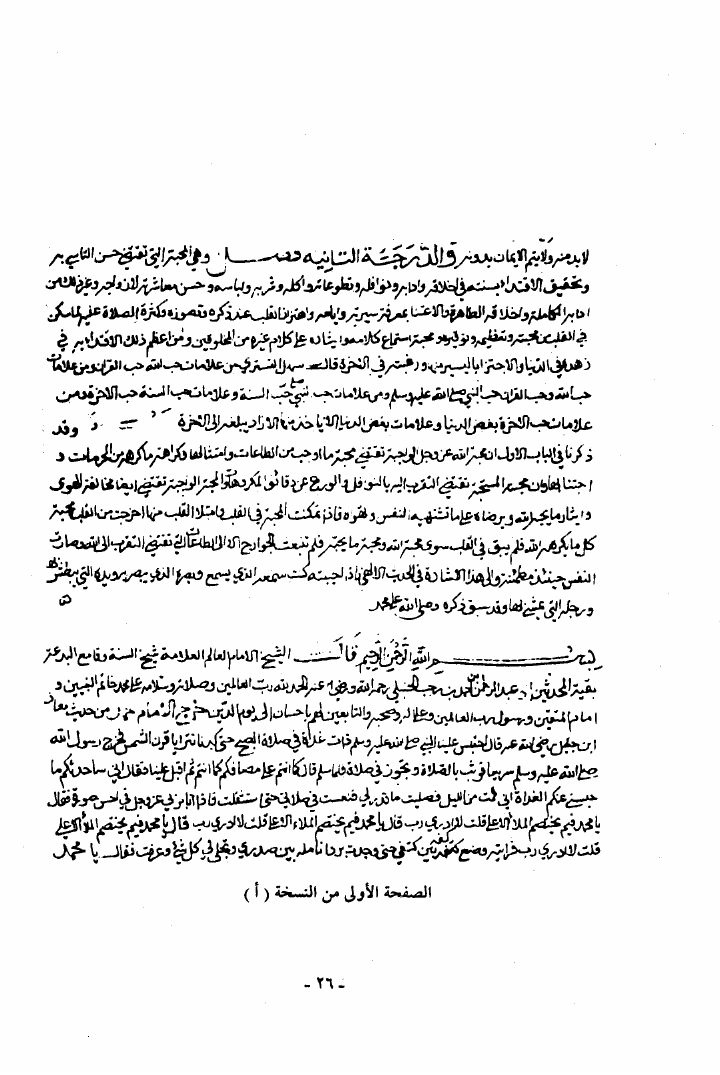 لا بد منه ولا يتم الايمان بدونه والدرجة الثانيه فضل وهي المحبة التي تقتضي حسن التاسي به
وتحقيق الاقتداء بسنته في اخلاقه وادابه ونوافله وتطوعاته واكله وشربه ولباسه وحسن معاشرته لازواجه وغير ذلك من
ادابه الكاملة واخلاقه الطاهرة والاعتنا بمعرفة سيرته وايامه واهتزاز القلب عند ذكره وتصوره وكثرة الصلاة عليه لما سكن
في القلب من محبته وتعظيمه وتوقيره ومحبة استماع كلامه وايثاره على كلام غيره من المخلوقين ومن اعظم ذلك الاقتداء به في
زهده في الدنيا والاجتزا باليسير منها ورغبته في الاخرة قال سهل التستري من علامات حب الله حب القران ومن علامات
حب الله وحب القران حب النبي صلى الله عليه وسلم ومن علامات حب النبي حب السنة وعلامات حب السنة حب الاخرة ومن
علامات حب الاخرة بغض الدنيا وعلامات بغض الدنيا ان لا ياخذ منها الا زادا يبلغه الى الاخرة وقد
ذكرنا في الباب الاول ان محبة الله عز وجل الواجبة تقتضي محبة ما اوجب من الطاعات وامتثالها وكراهة ما كرهه من المحرمات و
اجتنابها وان محبته المستحبة تقتضي التقرب اليه بالنوافل والورع عن دقائق المكروهات والمحبة الواجبة تقتضي ايضا مخالفة الهوى
وايثار ما يحبه الله ويرضاه على ما تشتهيه النفس وتهواه فاذا تمكنت المحبة في القلب وامتلا القلب منها اخرجت من القلب محبة
كل ما يكرهه الله فلم يبق في القلب سوى محبة الله ومحبة ما يحبه فلم تنبعث الجوارح الا الى الطاعات التي تقتضي التقرب الى الله وصارت
النفس حينئذ مطمئنة والى هذا الاشارة في الحديث الالهي فاذا احببته كنت سمعه الذي يسمع وبصره الذي يبصر به ويده التي يبطش بها
ورجله التي يمشي بها وقد سبق ذكره وصلى الله على محمد
بسم الله الرحمن الرحيم قال الشيخ الامام العالم العلامة شيخ السنة وقامع البدعة
بقية المحدثين عبد الرحمن بن احمد بن رجب الحنبلي رحمه الله ورضي عنه الحمد لله رب العالمين وصلاته وسلامه على محمد خاتم النبيين و
امام المتقين ورسول رب العالمين وعلى اله وصحبه والتابعين لهم باحسان الى يوم الدين خرج الامام احمد من حديث معاذ
ابن جبل رضي الله عنه قال احتبس علينا النبي صلى الله عليه وسلم ذات غداة في صلاة الصبح حتى كدنا نترايا قرن الشمس فخرج رسول الله
صلى الله عليه وسلم سريعا فثوب بالصلاة وتجوز في صلاته فلما سلم قال كما انتم على مصافكم كما انتم ثم اقبل علينا فقال اني ساحدثكم ما
حبسني عنكم الغداة اني قمت من الليل فصليت ما قدر لي فنعست في صلاتي حتى استثقلت فاذا انا بربي عز وجل في احسن صورة فقال
يا محمد فيم يختصم الملا الاعلى قلت لا ادري رب قال يا محمد فيم يختصم الملاء الاعلا قلت لا ادري رب قال يا محمد فيم يختصم الملا الاعلى
قلت لا ادري رب فرايته وضع كفه بين كتفي حتى وجدت برد انامله بين صدري وتجلى لي كل شي وعرفت فقال يا محمد
الصفحة الأولى من النسخة ( أ )
- ٢٦ -